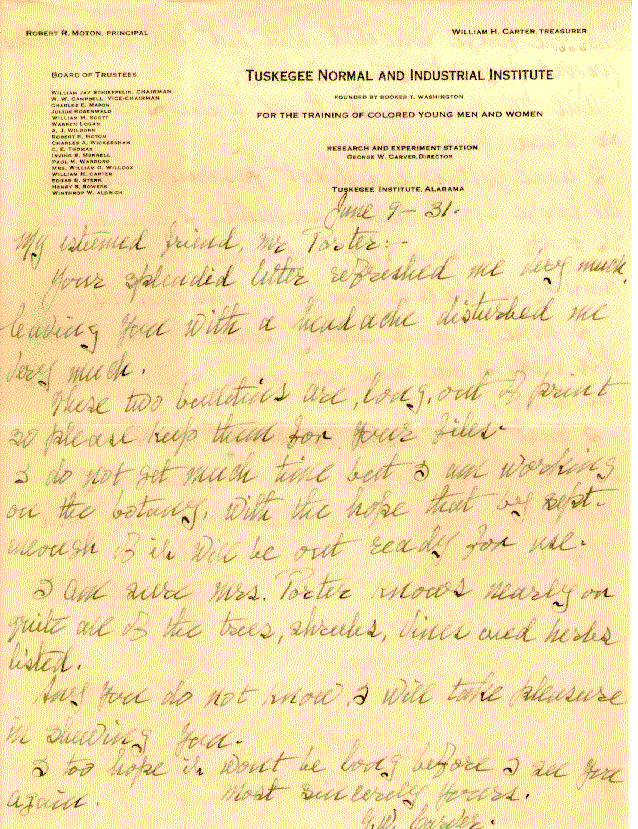 ROBERT R. MOTON, PRINCIPAL
WILLIAM H. CARTER, TREASURER
BOARD OF TRUSTEES
WILLIAM JAY SCHIEFFELIN, CHAIRMAN
W. W. CAMPBELL, VICE-CHAIRMAN
CHARLES E. MASON
JULIUS ROSENWALD
WILLIAM M. SCOTT
WARREN LOGAN
A. J. WILBORN
ROBERT R. MOTON
CHARLES A. WICKERSHAM
C. E. THOMAS
IRVING S. MERRELL
PAUL M. WARBURG
MRS. WILLIAM G. WILLCOX
WILLIAM H. CARTER
EDGAR B. STERN
HENRY B. BOWERS
WINTHROP W. ALDRICH
TUSKEGEE NORMAL AND INDUSTRIAL INSTITUTE
FOUNDED BY BOOKER T. WASHINGTON
FOR THE TRAINING OF COLORED YOUNG MEN AND WOMEN
RESEARCH AND EXPERIMENT STATION
GEORGE W. CARVER, DIRECTOR
TUSKEGEE INSTITUTE, ALABAMA
June 9-31.
My esteemed friend, Mr. Porter:-
Your splendid letter refreshed me very much,
leaving you with a headache disturbed me
very much.
These two bulletins are, long, out of print
so please keep them for your files.
I do not get much time but I am working
on the botany, with the hope that by sept.
enough of it will be out ready for use.
I am sure Mrs. Porter knows nearly or
quite all of the trees, shrubs, vines and herbs
listed.
Any you do not know, I will take pleasure
in showing you.
I too hope it wont be long before I see you
again. most sincerely yours.
G.W. Carver.